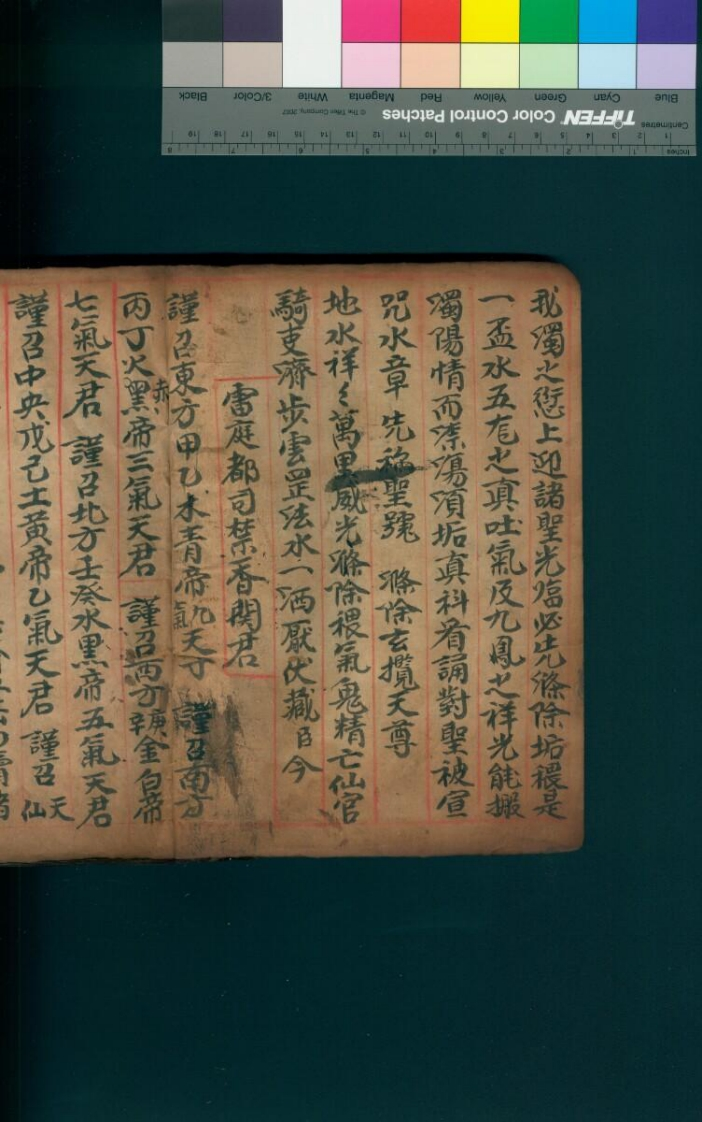 我濁之愆上迎諸聖光臨必先滌除垢穢是
一盃水五尨之真吐氣及九鳳之祥光能搬
濁陽情而滌蕩須垢真科省誦對聖被宣
咒水章先稱聖號 滌除玄攬天尊
地水祥々萬里威光滌除穢氣鬼精亡仙官
騎吏濟步雲罡法水一洒厭伏藏 臣今
雷庭都司禁香関君
謹召東方甲乙木青帝九氣天丁 謹召南方
丙丁火赤帝三氣天君 謹召西方庚辛金白帝
七氣天君 謹召北方壬癸水黑帝五氣天君
謹召中央戊己土黃帝乙氣天君 謹召天仙
TIFFEN Color Control Patches
© The Tiffen Company, 2007
Centimetres
Inches
Blue Cyan Green Yellow Red Magenta White 3/Color Black